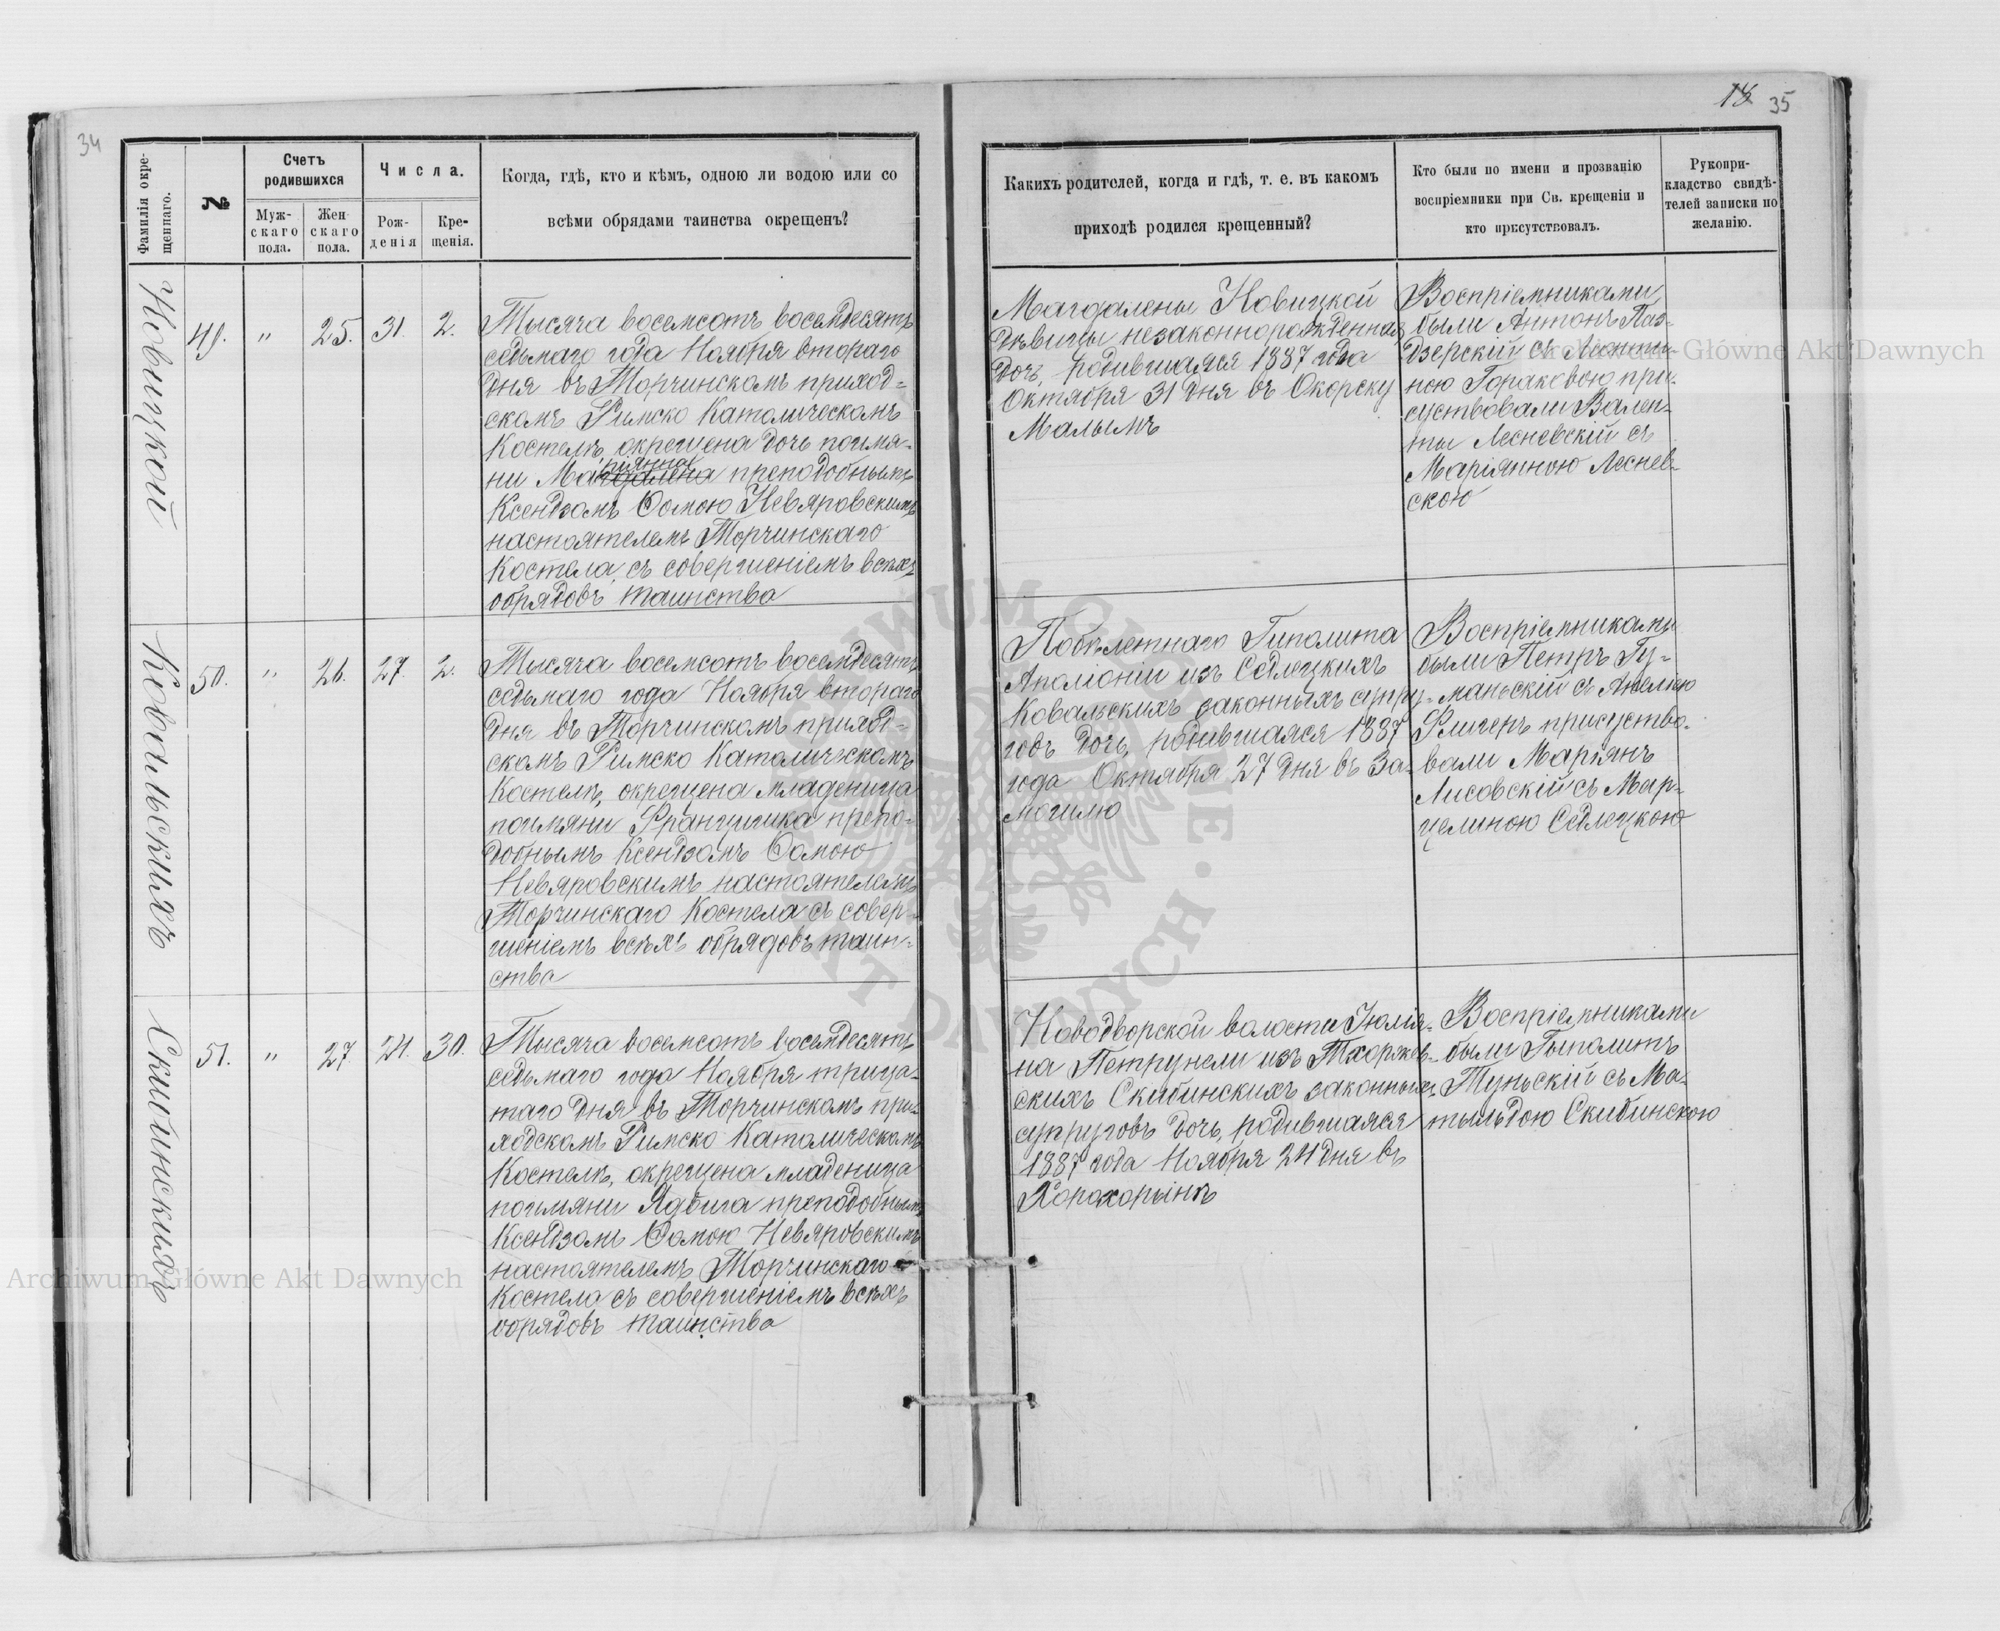 34
18 35
Фамилія окре-
щеннаго.
№
Счетъ
родившихся
Муж-
скаго
пола.
Жен-
скаго
пола.
Числа.
Рож-
денія
Кре-
щенія.
Когда, гдѣ, кто и кѣмъ, одною ли водою или со
всѣми обрядами таинства окрещенъ?
Какихъ родителей, когда и гдѣ, т. е. въ какомъ
приходѣ родился крещенный?
Кто были по имени и прозванію
воспріемники при Св. крещеніи и
кто присутствовалъ.
Рукопри-
кладство свидѣ-
телей записки по
желанію.
Новицкой
49. " 25. 31. 2.
Тысяча восемсотъ восемдесятъ
седьмаго года Ноября втораго
дня въ Торчинскомъ приход-
скомъ Римско Католическомъ
Костелѣ, окрещена дочь поимя-
ни Магдалена ріянна преподобнымъ
Ксендзомъ Ѳомою Невяровскимъ
настоятелемъ Торчинскаго
Костела съ совершеніемъ всѣхъ
обрядовъ таинства
Магдалены Новицкой
дѣвицы незаконнорожденная
дочь, родившаяся 1887 года
Октября 31 дня въ Окорску
Малымъ
Воспріемниками
были Антонъ Паз-
дзерскій съ Леонти-
ною Гораковою при-
суствовали Вален-
ты Лесневскій съ
Маріянною Леснев-
скою
Ковальскихъ
50. " 26. 27. 2.
Тысяча восемсотъ восемдесятъ
седьмаго года Ноября втораго
дня въ Торчинскомъ приход-
скомъ Римско Католическомъ
Костелѣ, окрещена младеница
поимяни Францишка препо-
добнымъ Ксендзомъ Ѳомою
Невяровскимъ настоятелемъ
Торчинскаго Костела съ совер-
шеніемъ всѣхъ обрядовъ таин-
ства
Гиполита
Аполіоніи изъ Седлецкихъ
Ковальскихъ законныхъ супру-
говъ дочь, родившаяся 1887
года Октября 27 дня въ За-
могилю
Воспріемниками
были Петръ Гу-
маньскій съ Анелею
присутство-
вали Маріянъ
Лисовскій съ Мар-
целиною Седлецкою
Скибинскихъ
51. " 27. 24. 30.
Тысяча восемсотъ восемдесятъ
седьмаго года Ноября трица-
таго дня въ Торчинскомъ при-
ходскомъ Римско Католическомъ
Костелѣ, окрещена младеница
поимяни Ядвига преподобнымъ
Ксендзомъ Ѳомою Невяровскимъ
настоятелемъ Торчинскаго
Костела съ совершеніемъ всѣхъ
обрядовъ таинства
Новодворской волости Юлія-
на Петрунели изъ Тхоржев-
скихъ Скибинскихъ законныхъ
супруговъ дочь, родившаяся
1887 года Ноября 24 дня въ
Хорохоринѣ
Воспріемниками
были Гыполитъ
Туньскій съ Ма-
тыльдою Скибинскою
Archiwum Główne Akt Dawnych
Archiwum Główne Akt Dawnych
ARCHIWUM GŁÓWNE AKT DAWNYCH